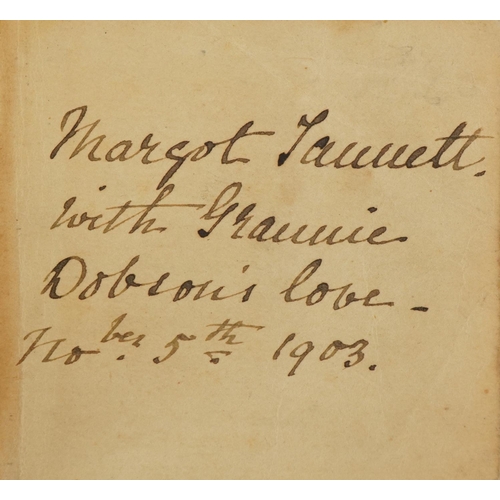 Margot Tannett.
with Grannie
Dobson's love -
No ber. 5th 1903.